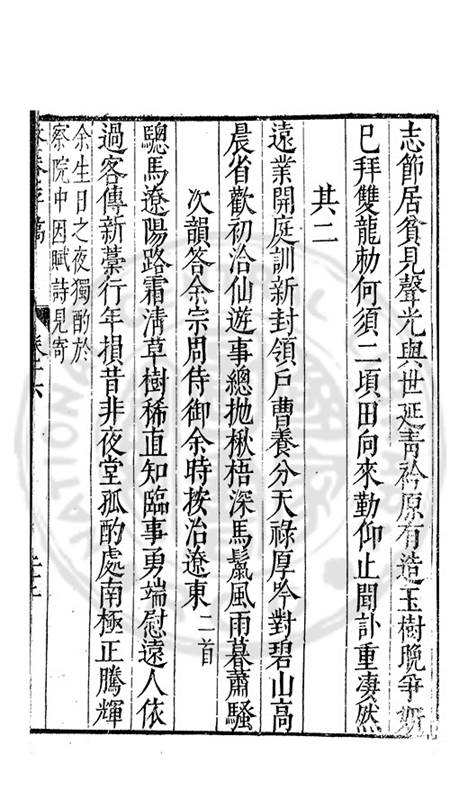 志節居貧見聲光與世延青衿原有造玉樹晚爭妍
已拜雙龍勅何須二頃田向來勤仰止聞訃重凄然
其二
遠業開庭訓新封領戶曹養分天祿厚吟對碧山高
晨省歡初洽仙遊事總拋楸梧深馬鬛風雨暮蕭騷
次韻答余宗周侍御余時按治遼東二首
驄馬遼陽路霜清草樹稀直知臨事勇端慰遠人依
過客傳新藁行年損昔非夜堂孤酌處南極正騰輝
余生日之夜獨酌於
察院中因賦詩見寄
卷十六